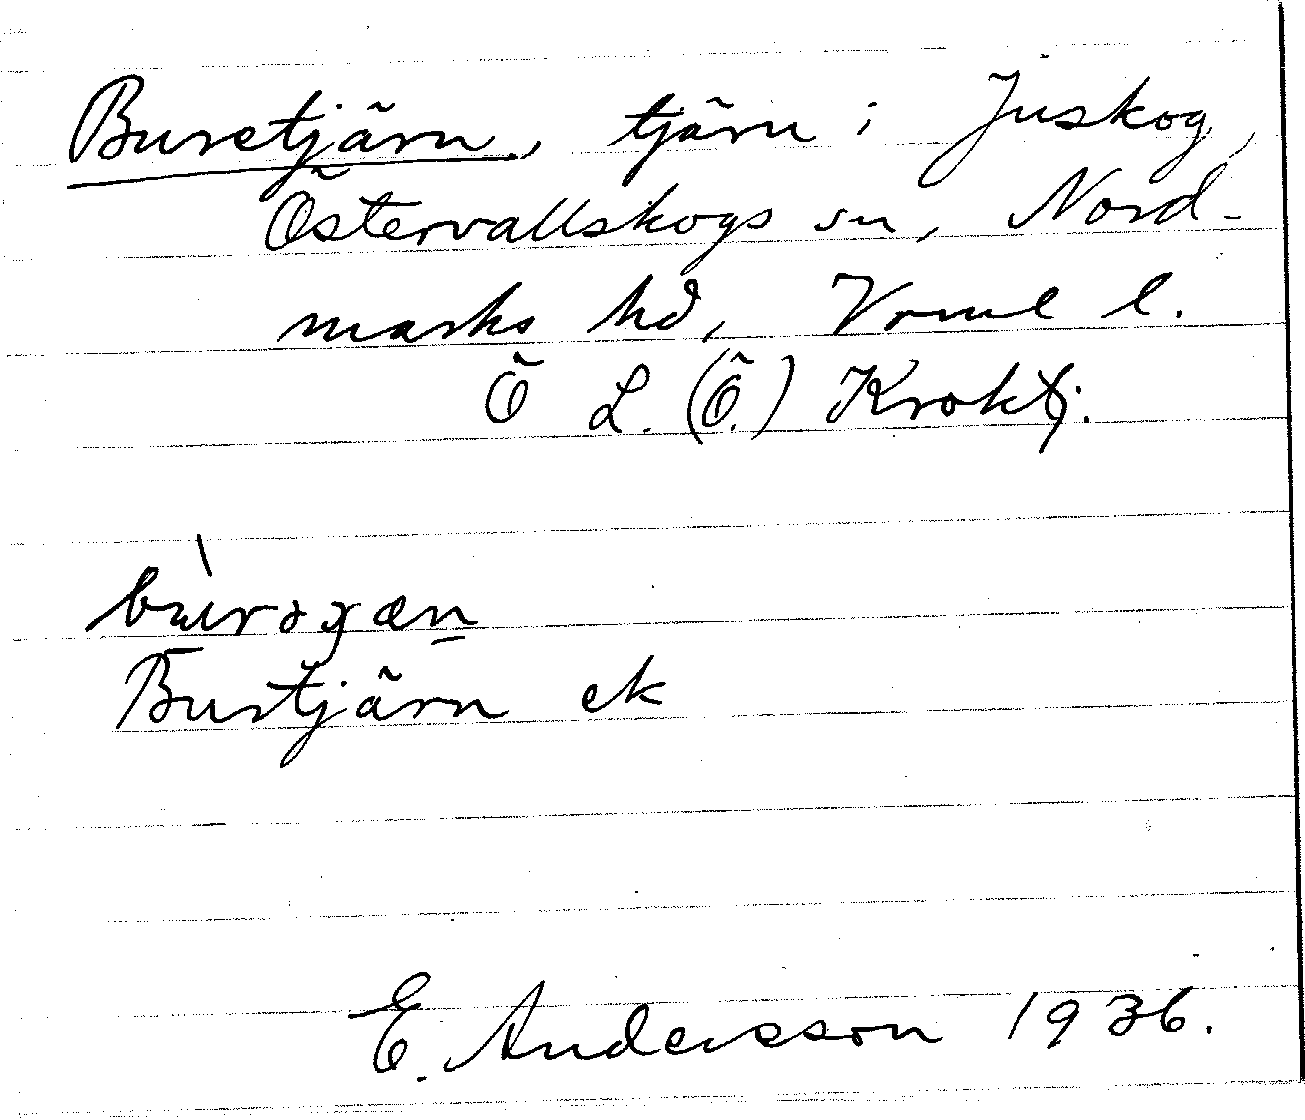 Buretjärn, tjärn i Juskog,
Östervallskogs sn, Nord-
marks hd, Vrml l.
Ö L. (Ö.) Kroktj.
Burtjärn ek
E. Andersson 1936.